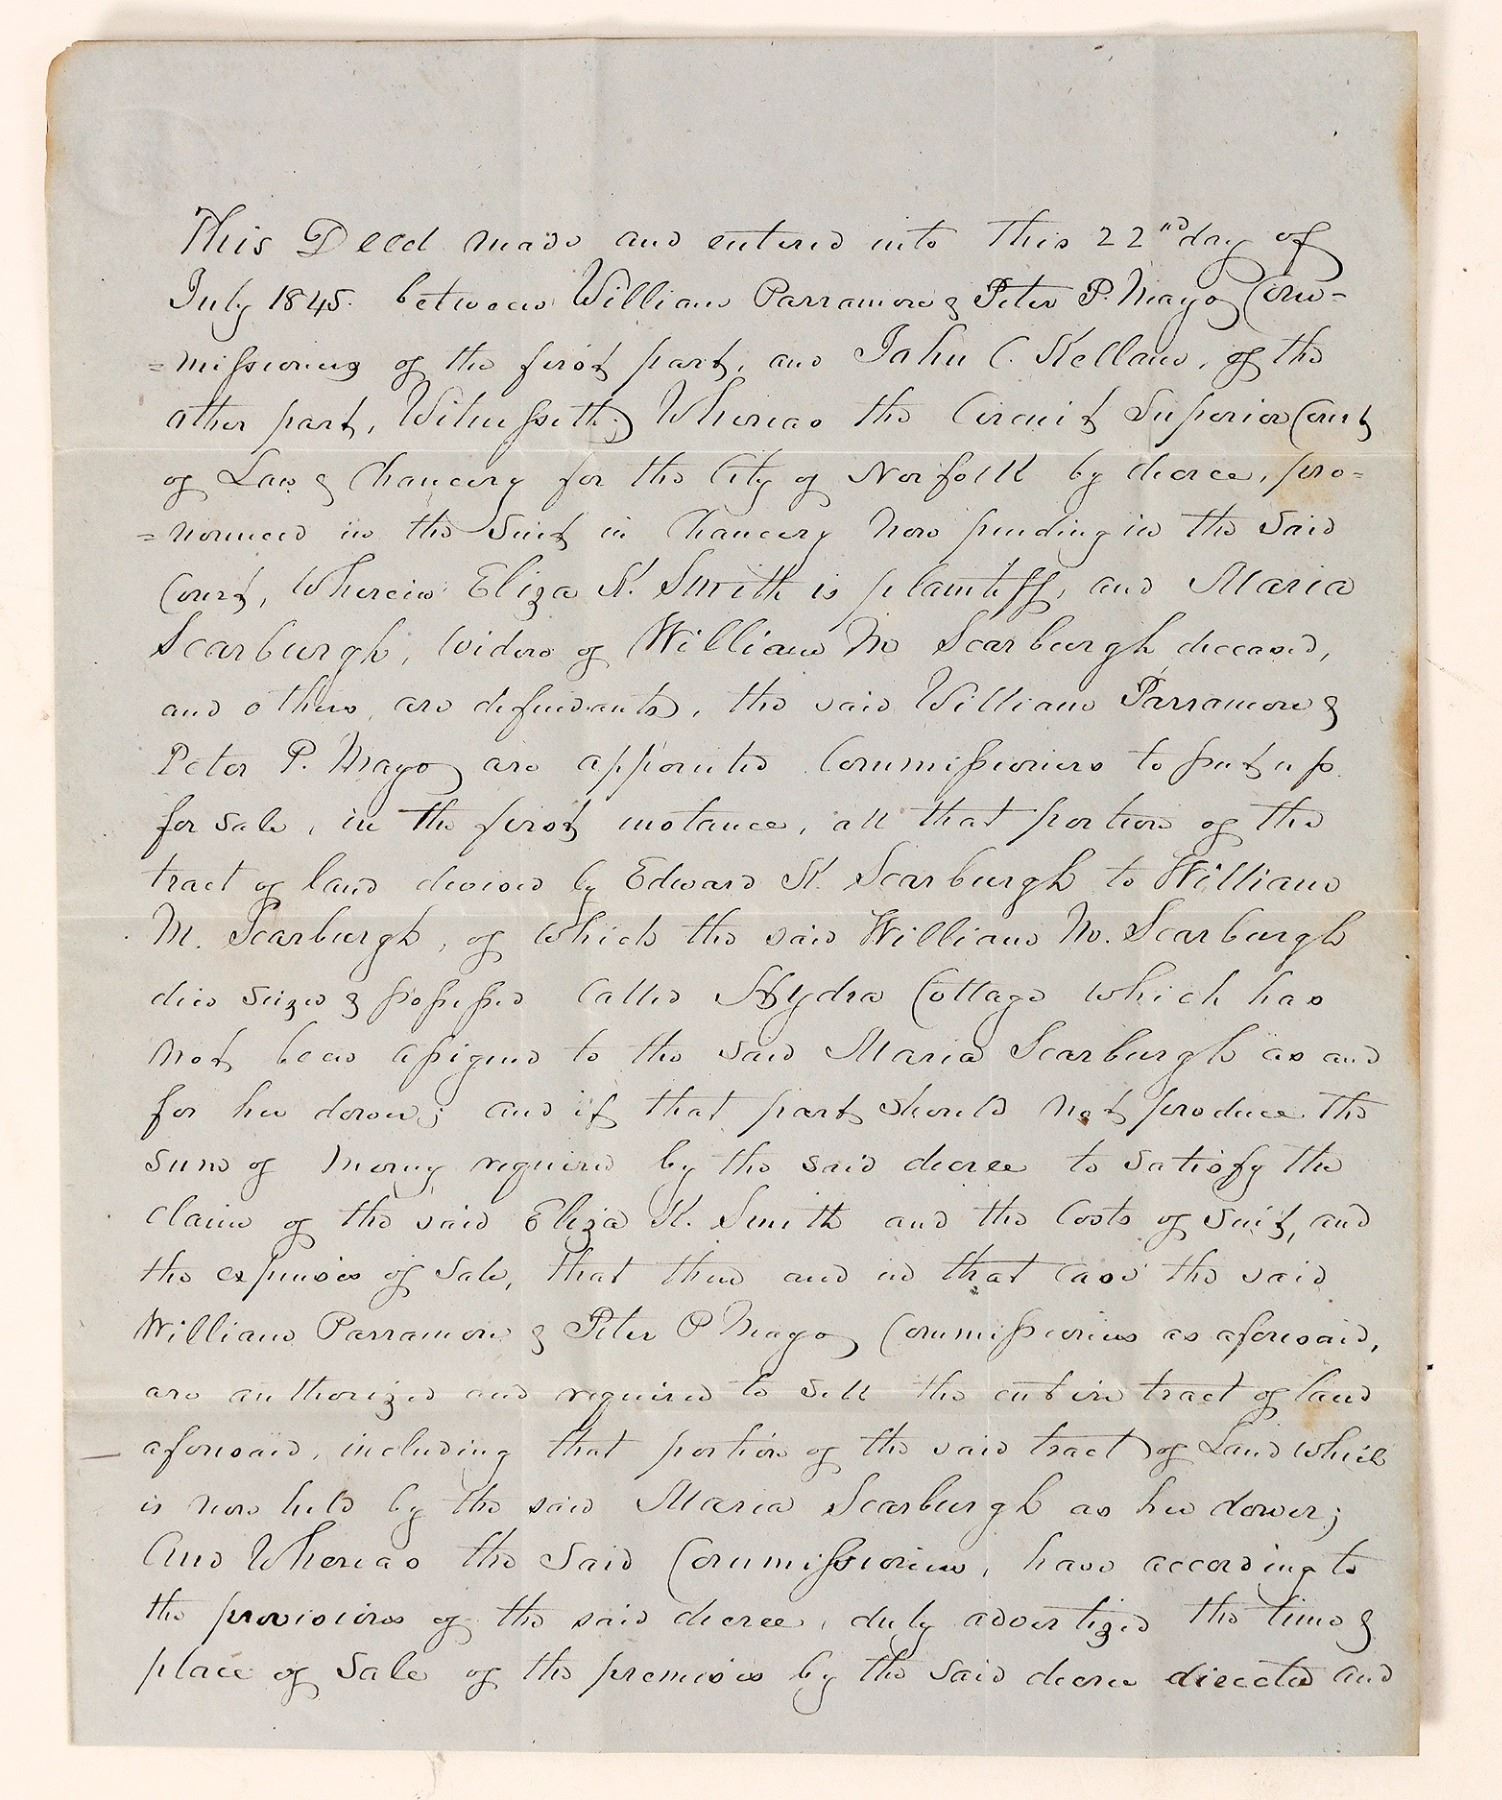 This Deed made and entered into this 22nd day of
July 1845. between William Parramore & Peter P. Mayo Com=
=missioners of the first part, and John C. Kellam, of the
other part, Witnesseth, Whereas the Circuit Superior Court
of Law & Chancery for the City of Norfolk by decree, pro=
=nounced in the Suit in Chancery now pending in the Said
Court, Wherein Eliza K. Smith is plaintiff, and Maria
Scarburgh, Widow of William M Scarburgh deceased,
and others, are defendants, the said William Parramore &
Peter P. Mayo are appointed Commissioners to put up
for sale, in the first instance, all that portion of the
tract of land devised by Edward K. Scarburgh to William
M. Scarburgh, of which the said William M. Scarburgh
died seized & possessed Called Hydra Cottage which has
not been assigned to the said Maria Scarburgh as and
for her dower; and if that part should not produce the
sum of money required by the said decree to satisfy the
claim of the said Eliza K. Smith and the Costs of suit, and
the expenses of sale, that then and in that case the said
William Parramore & Peter P Mayo Commissioners as aforesaid,
are authorized and required to sell the entire tract of land
aforesaid, including that portion of the said tract of Land which
is now held by the said Maria Scarburgh as her dower;
And Whereas the Said Commissioners, have according to
the provisions of the said decree, duly advertized the time &
place of Sale of the premises by the said decree directed and